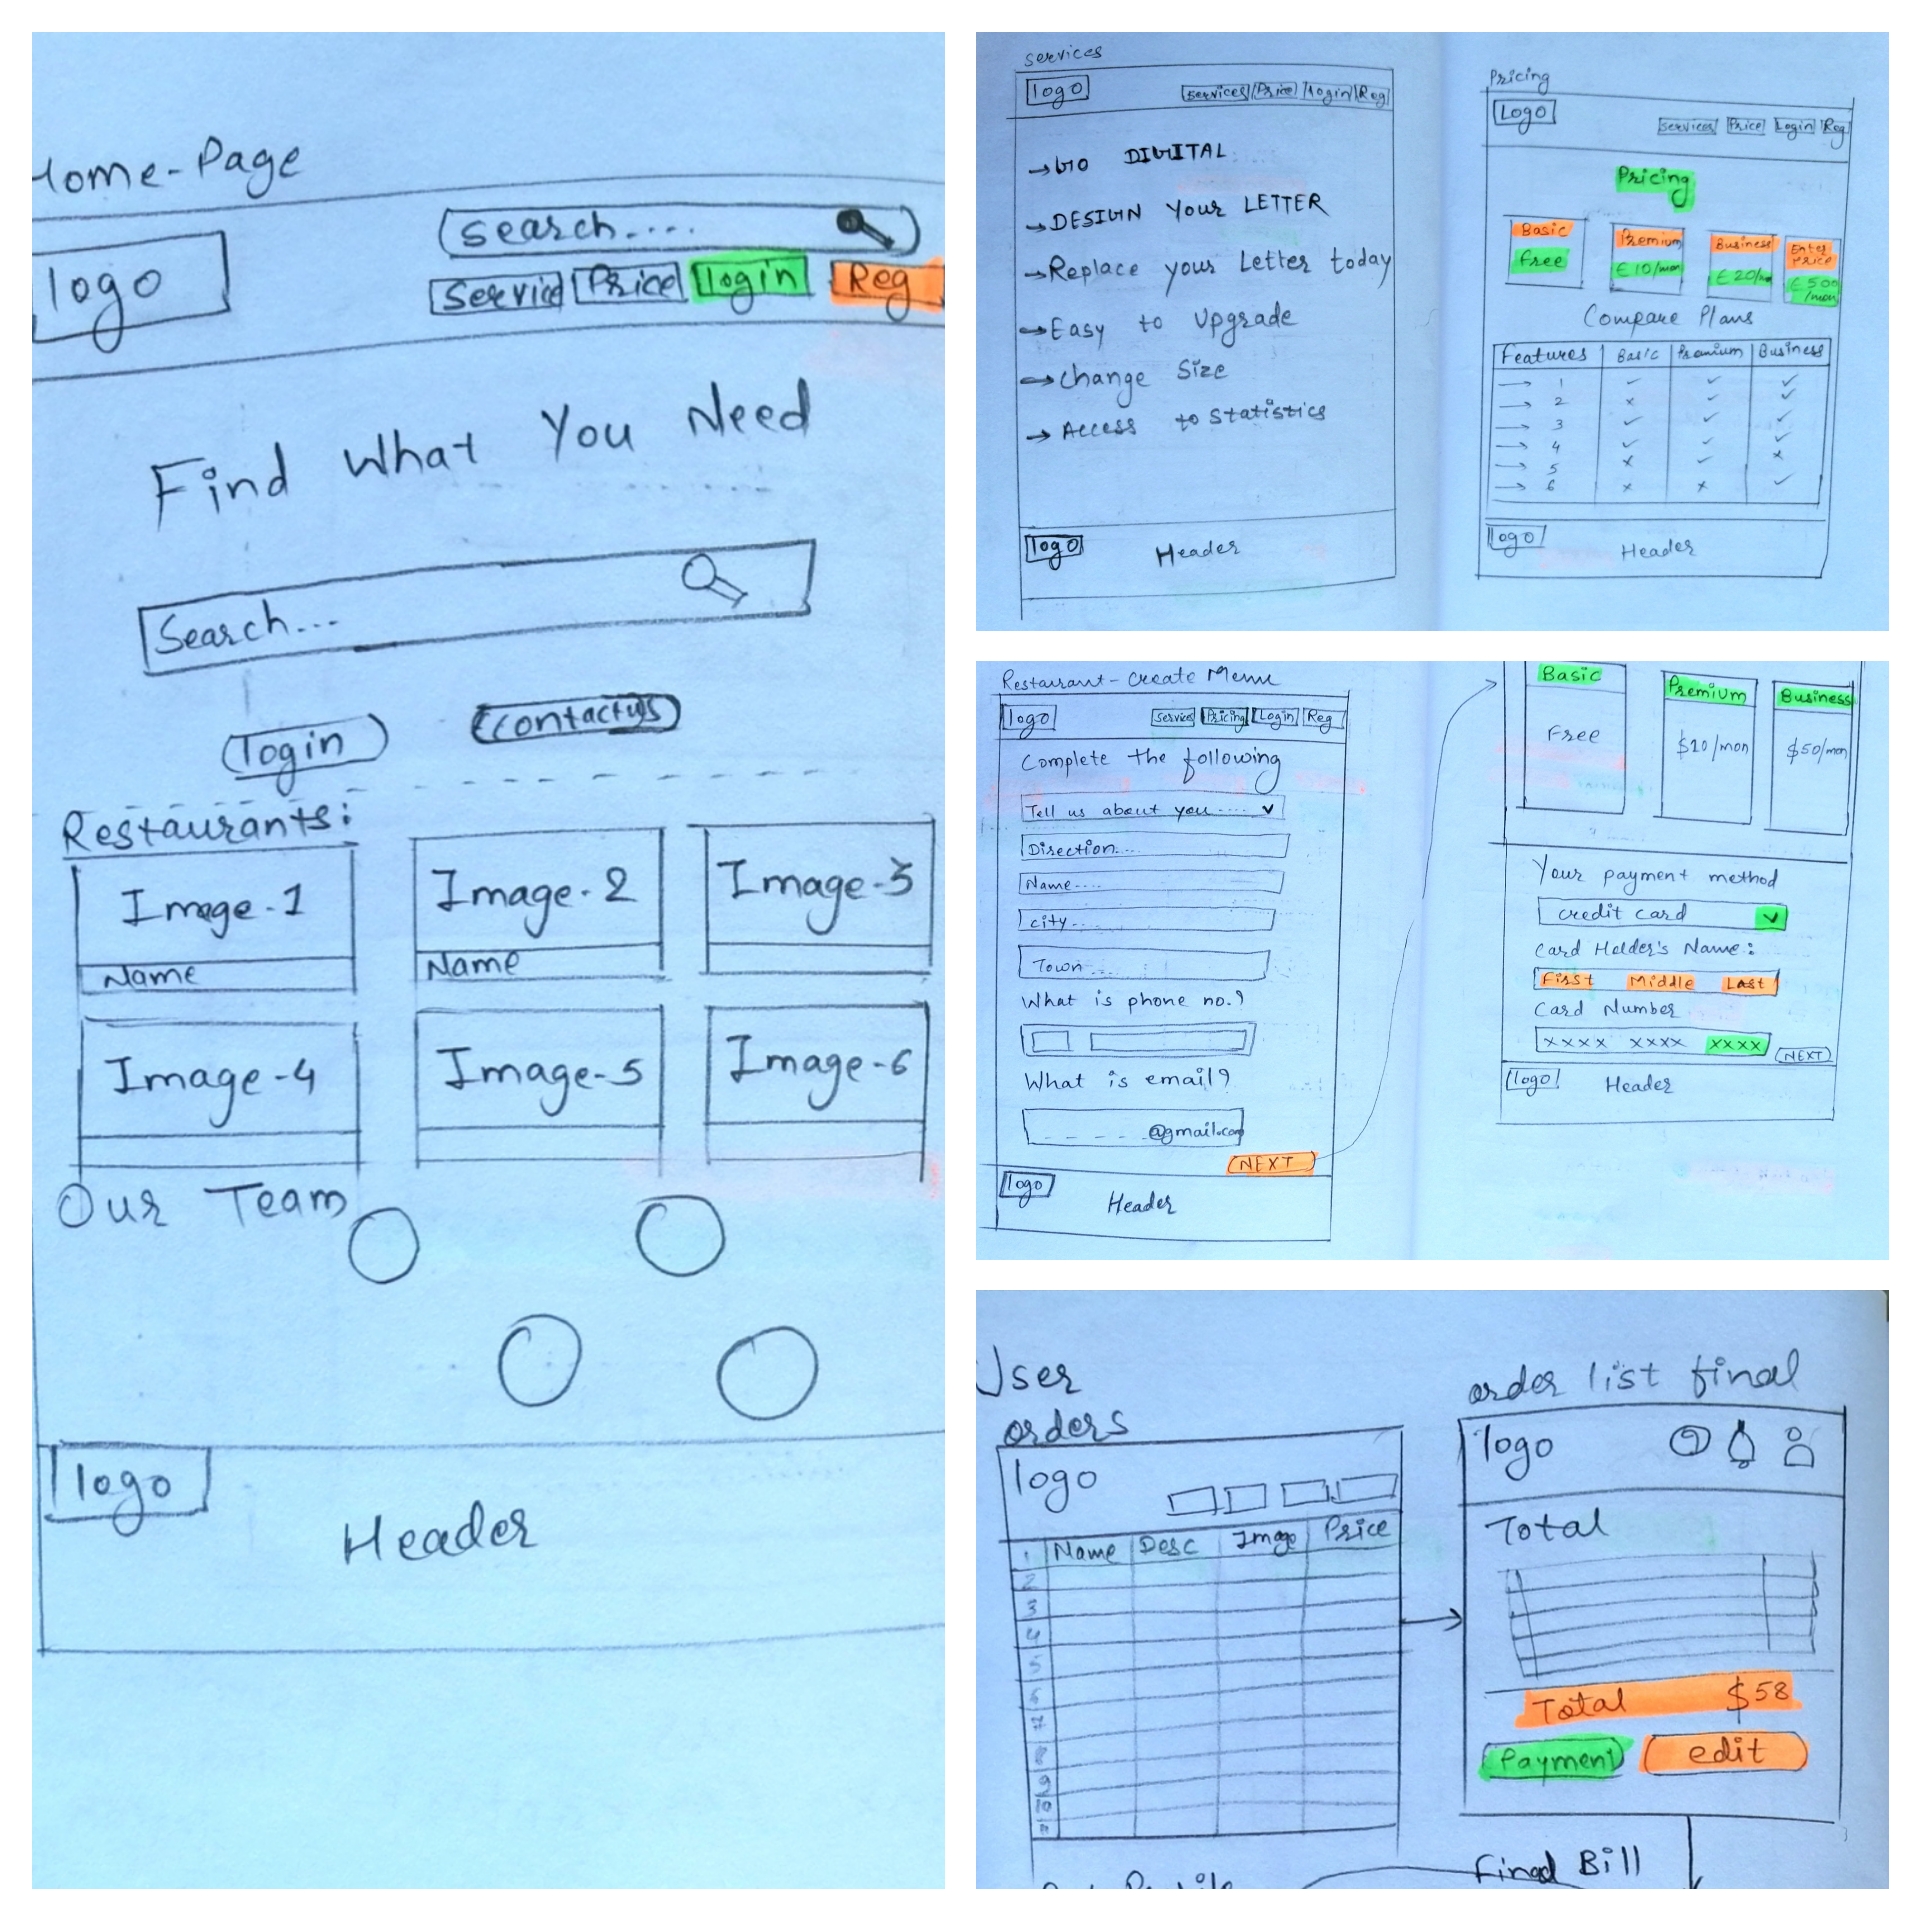 Home-Page
logo
search....
Service Price login Reg
Find What You Need
Search...
login contactus
Restaurants:
Image-1 Image-2 Image-3
Name Name
Image-4 Image-5 Image-6
Our Team
logo
Header
services
logo
services Price login Reg
→ GO DIGITAL
→ DESIGN Your LETTER
→ Replace your Letter today
→ Easy to Upgrade
→ change Size
→ Access to Statistics
logo Header
Pricing
Logo
services Price Login Reg
Pricing
Basic Premium Business Enter Price
Free € 10/mon € 20/m € 500 /mon
Compare Plans
Features Basic Premium Business
→ 1 ✓ ✓ ✓
→ 2 x ✓ ✓
→ 3 ✓ ✓ ✓
→ 4 ✓ ✓ ✓
→ 5 x ✓ x
→ 6 x x ✓
logo Header
Restaurant - Create Menu
logo
Services Pricing Login Reg
Complete the following
Tell us about you....
Direction...
Name....
city...
Town...
What is phone no.?
What is email?
_ _ _ _ @gmail.com
NEXT
logo
Header
Basic Premium Business
Free $10/mon $50/mon
Your payment method
credit card
Card Holder's Name:
First Middle Last
Card Number
xxxx xxxx xxxx
NEXT
logo Header
User
orders
logo
1 Name Desc Image Price
2
3
4
5
6
8
9
10
order list final
logo
Total
Total $58
Payment edit
Final Bill